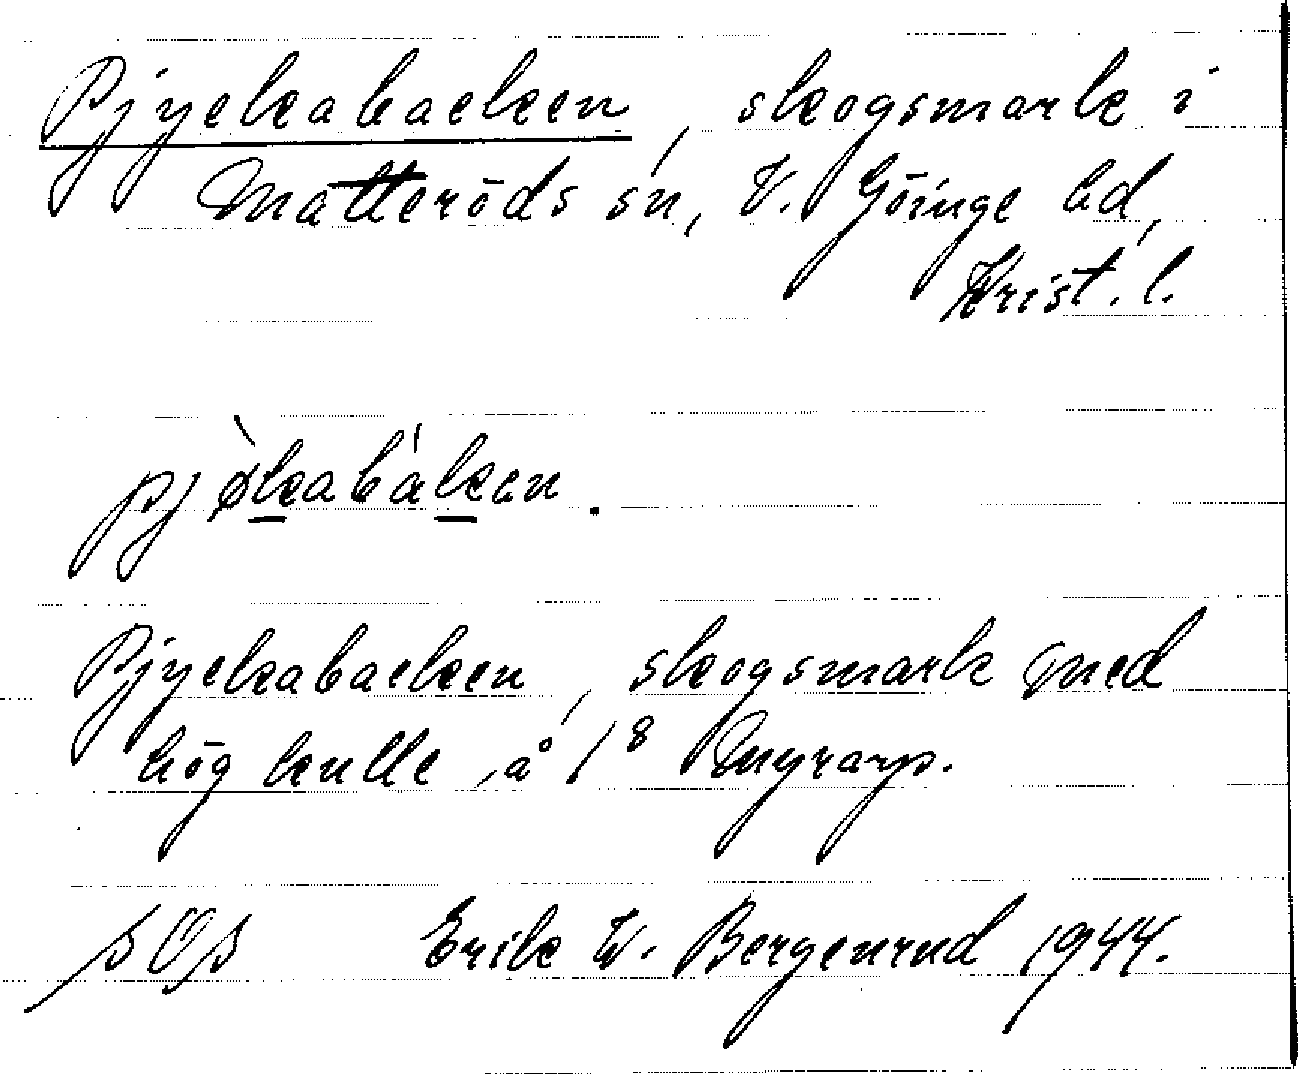 Pjyekabacken, skogsmark i
Matteröds sn, V. Göinge hd,
Krist. l.
pjø̀kabákan.
Pjyekabacken, skogsmark med
hög kulle, å 1⁸ Myrarp.
SOS Erik W. Bergenrud 1944.